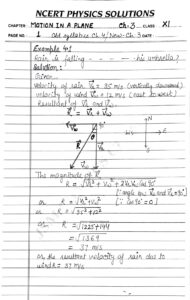 NCERT PHYSICS SOLUTIONS
CHAPTER MOTION IN A PLANE Ch-3 CLASS XI
PAGE NO. 1 Old syllabus Ch 4/New Ch 3 DATE
Example 4.1
Rain is falling - - - - - - his umbrella?
Solution:
Given
Velocity of rain Vr = 35 m/s (vertically downward)
velocity by wind Vw = 12 m/s (east to west)
Resultant of Vr and Vw
R = Vr + Vw
The magnitude of R
R = √Vr² + Vw² + 2VrVw cos90°
or R = √Vr² + Vw² [∵ cos90° = 0]
or R = √35² + 12²
or R = √1225+144
= √1369
= 37 m/s
so the resultant velocity of rain due to
wind R = 37 m/s